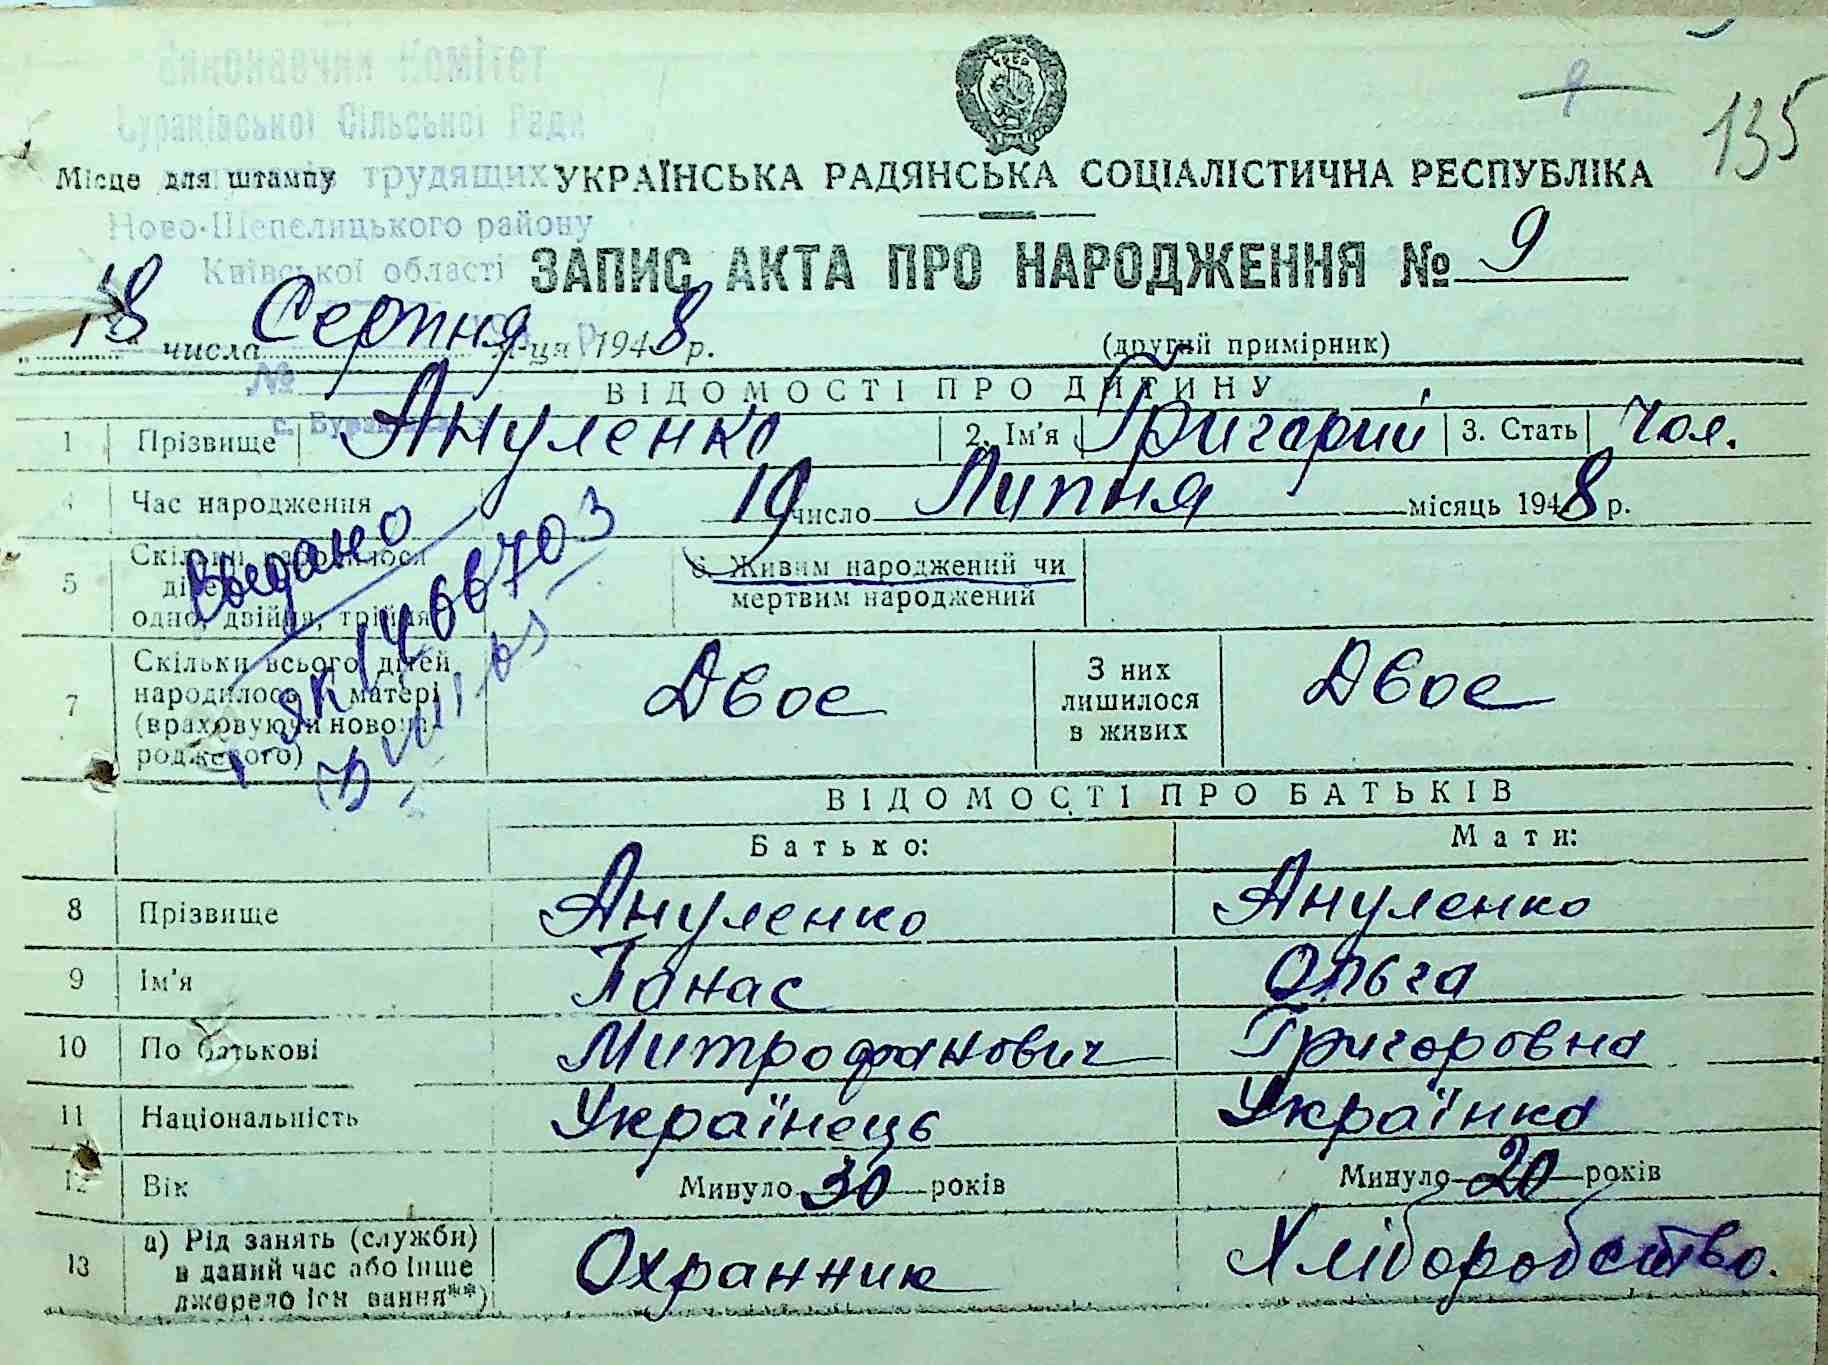 Виконавчий Комітет
Бураківської Сільської Ради
трудящих
Ново-Шепелицького району
Київської області
№
с.
9
135
Місце для штампу
УКРАЇНСЬКА РАДЯНСЬКА СОЦІАЛІСТИЧНА РЕСПУБЛІКА
ЗАПИС АКТА ПРО НАРОДЖЕННЯ № 9
„18" числа Серпня м-ця 1948 р.
(другий примірник)
ВІДОМОСТІ ПРО ДИТИНУ
1 Прізвище Ануленко 2. Ім'я Григорий 3. Стать Чол.
4 Час народження 19 число Липня місяць 1948 р.
5 Скільки народилося дітей одно, двійня, трійня
6. Живим народжений чи мертвим народжений
Выдано
1466703
7 Скільки всього дітей народилось у матері (враховуючи новонародженого) Двоє З них лишилося в живих Двоє
ВІДОМОСТІ ПРО БАТЬКІВ
Батько: Мати:
8 Прізвище Ануленко Ануленко
9 Ім'я Панас Ольга
10 По батькові Митрофанович Григоровна
11 Національність Українець Українка
12 Вік Минуло 30 років Минуло 20 років
13 а) Рід занять (служби) в даний час або інше джерело існування**) Охранник Хліборобство.